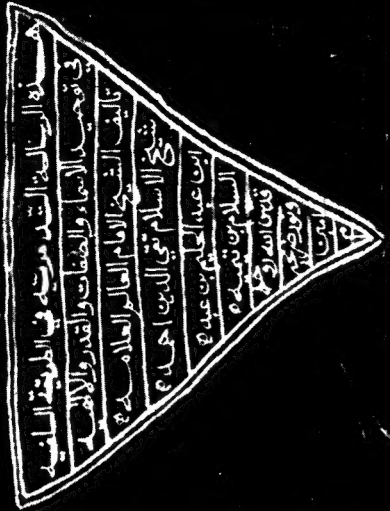 هذه الرسالة التدمريه في الطريقة السلفيه
في توحيد الاسماء والصفات والقدر والالهيه
تاليف الشيخ الامام العالم العلامه م
شيخ الاسلام تقي الدين احمد م
ابن عبد الحليم بن عبد م
السلام بن تيميه م
قدس الله روحه
ونور ضريحه
امين
م